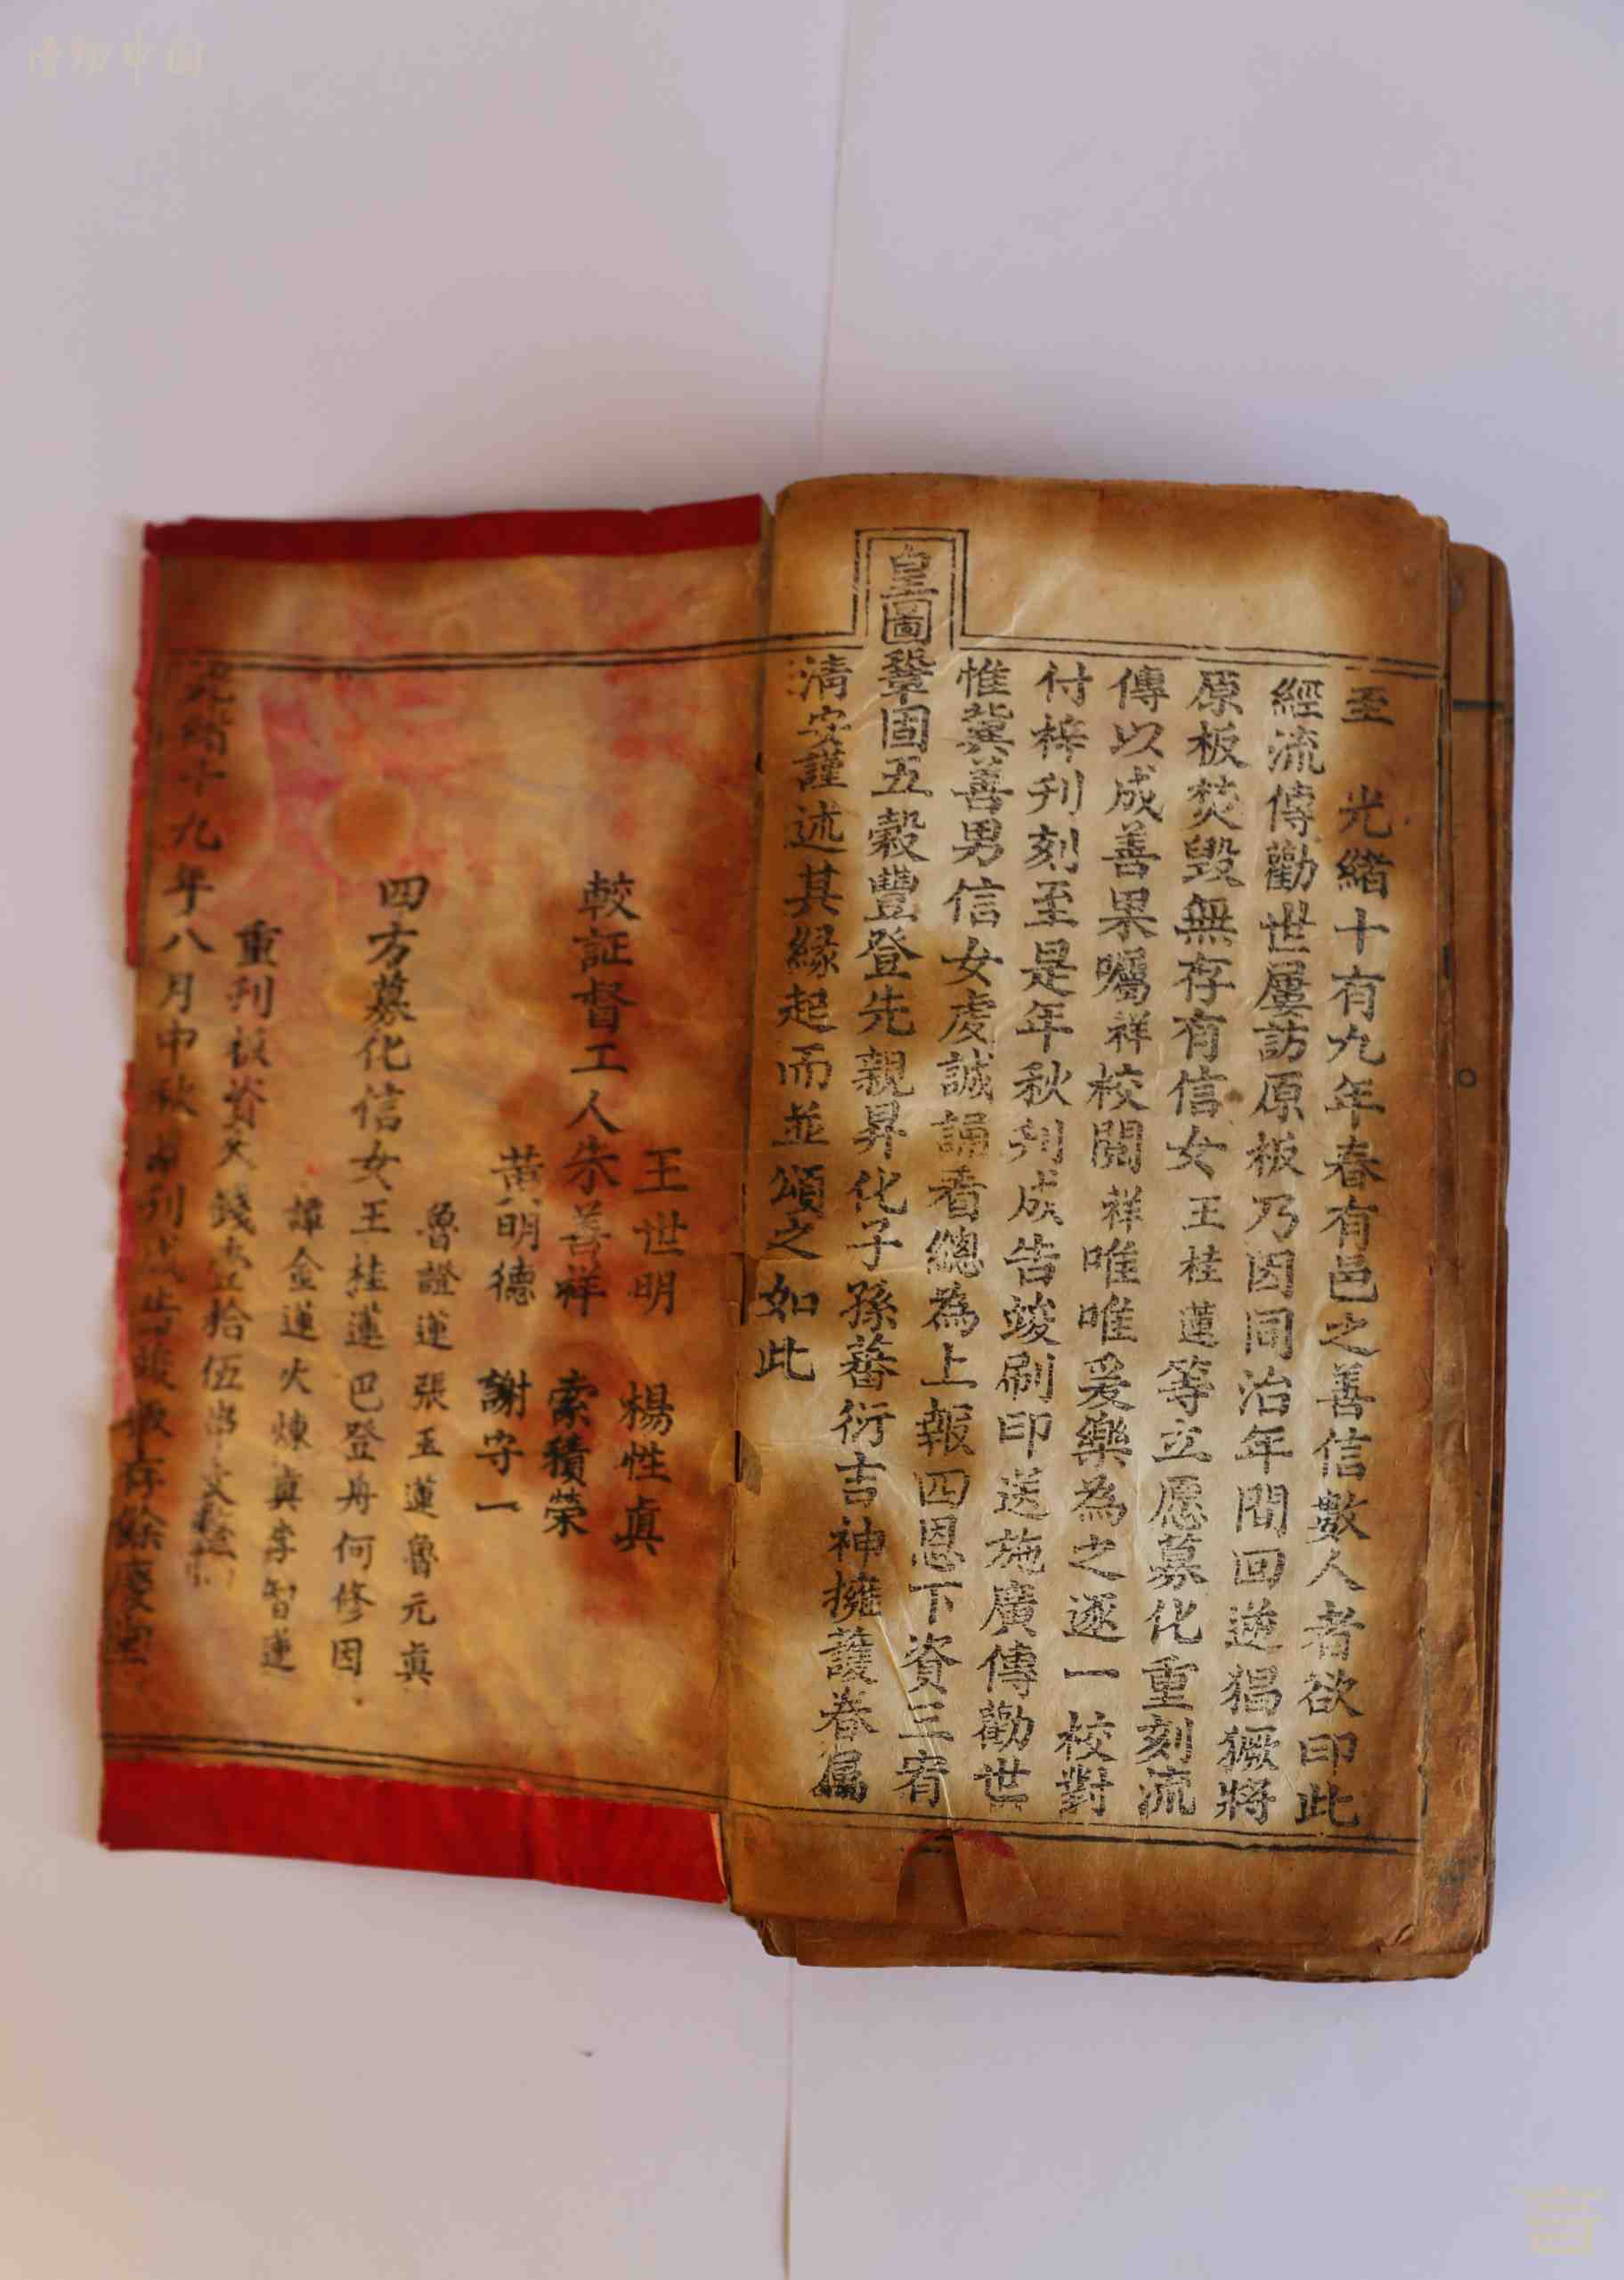 至　光緒十有九年春有邑之善信數人者欲印此
經流傳勸世屢訪原板乃因同治年間回逆猖獗將
原板焚毀無存有信女王桂蓮等立愿募化重刻流
傳以成善果囑祥校閱祥唯唯爰樂為之逐一校對
付梓刊刻至是年秋刊成告竣刷印送施廣傳勸世
惟冀善男信女虔誠誦看總為上報四恩下資三宥
皇圖鞏固五穀豐登先親昇化子孫蕃衍吉神擁護眷属
清安謹述其緣起而並頌之如此
王世明　楊性眞
較証督工人朱善祥　索積榮
黃明德　謝守一
魯證蓮張玉蓮魯元眞
四方募化信女王桂蓮巴登舟何修因
譚金蓮火煉眞李智蓮
重刊板資共錢壹拾伍串文整
光緒十九年八月中秋刊成告竣板存餘慶堂